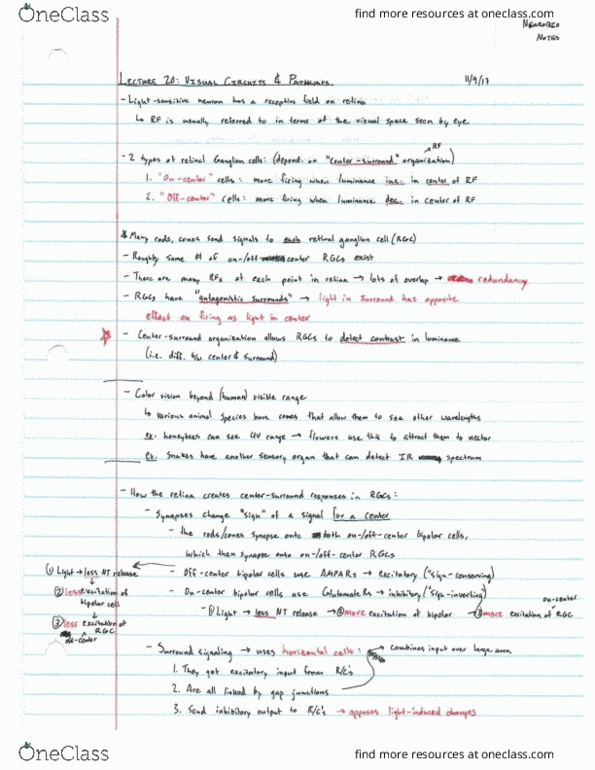 OneClass
find more resources at oneclass.com
NEUROBIO
NOTES
LECTURE 20: VISUAL CIRCUITS & PATHWAYS 11/9/17
- Light-sensitive neuron has a receptive field on retina
↳ RF is usually referred to in terms of the visual space seen by eye
- 2 types of retinal ganglion cells: (depend on "center-surround" organization)
RF
1. "On-center" cells: more firing when luminance inc. in center of RF
2. "Off-center" cells: more firing when luminance dec. in center of RF
* Many rods, cones send signals to each retinal ganglion cell (RGC)
- Roughly same # of on-/off-center RGCs exist
- There are many RFs at each point in retina → lots of overlap → redundancy
- RGCs have "antagonistic surrounds" → light in surround has opposite
effect on firing as light in center
- Center-surround organization allows RGCs to detect contrast in luminance
(i.e. diff. b/w center & surround)
- Color vision beyond (human) visible range
↳ various animal species have cones that allow them to see other wavelengths
ex. honeybees can see UV range → flowers use this to attract them to nectar
ex. Snakes have another sensory organ that can detect IR spectrum
- How the retina creates center-surround responses in RGCs:
- Synapses change "sign" of a signal for a center
- the rods/cones synapse onto both on-/off-center bipolar cells,
which then synapse onto on-/off-center RGCs
- Off-center bipolar cells use AMPARs → excitatory ("sign-conserving)
- On-center bipolar cells use GlutamateRs → inhibitory ("sign-inverting)
① Light → less NT release → ② more excitation of bipolar → ③ more excitation of RGC
on-center
① Light → less NT release
② less excitation of
bipolar cell
③ less excitation of
off-center RGC
- Surround signaling → uses horizontal cells: combines input over large area
1. They get excitatory input from R/C's
2. Are all linked by gap junctions
3. Send inhibitory output to R/C's → opposes light-induced changes
OneClass
find more resources at oneclass.com